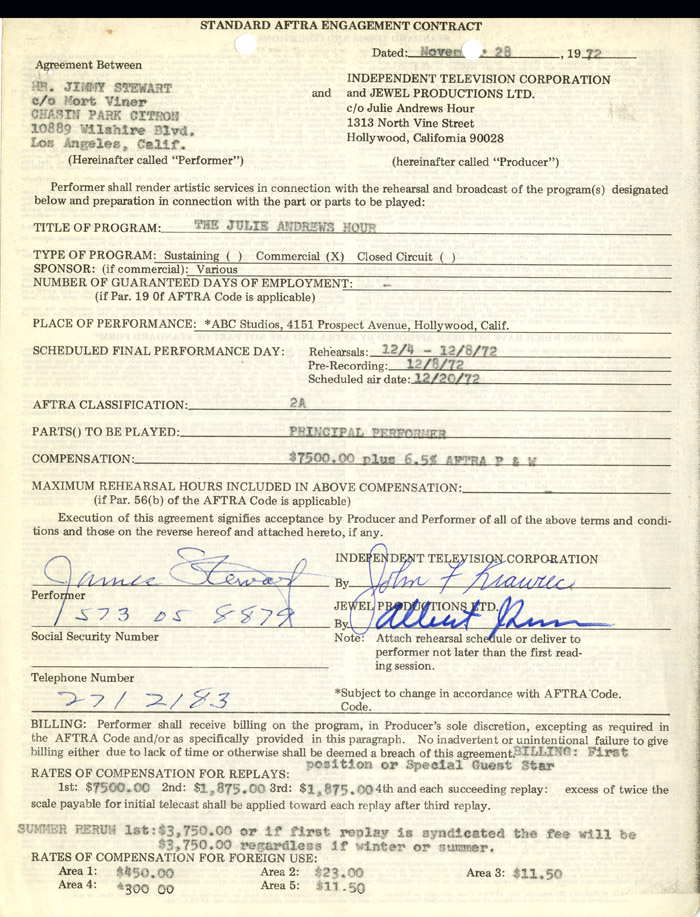 STANDARD AFTRA ENGAGEMENT CONTRACT
Dated: November 28, 1972
Agreement Between
MR. JIMMY STEWART
c/o Mort Viner
CHASIN PARK CITRON
10889 Wilshire Blvd.
Los Angeles, Calif.
(Hereinafter called "Performer")
and
INDEPENDENT TELEVISION CORPORATION
and JEWEL PRODUCTIONS LTD.
c/o Julie Andrews Hour
1313 North Vine Street
Hollywood, California 90028
(hereinafter called "Producer")
Performer shall render artistic services in connection with the rehearsal and broadcast of the program(s) designated
below and preparation in connection with the part or parts to be played:
TITLE OF PROGRAM: THE JULIE ANDREWS HOUR
TYPE OF PROGRAM: Sustaining ( ) Commercial (X) Closed Circuit ( )
SPONSOR: (if commercial): Various
NUMBER OF GUARANTEED DAYS OF EMPLOYMENT: -
(if Par. 19 Of AFTRA Code is applicable)
PLACE OF PERFORMANCE: *ABC Studios, 4151 Prospect Avenue, Hollywood, Calif.
SCHEDULED FINAL PERFORMANCE DAY: Rehearsals: 12/4 - 12/8/72
Pre-Recording: 12/8/72
Scheduled air date: 12/20/72
AFTRA CLASSIFICATION: 2A
PARTS() TO BE PLAYED: PRINCIPAL PERFORMER
COMPENSATION: $7500.00 plus 6.5% AFTRA P & W
MAXIMUM REHEARSAL HOURS INCLUDED IN ABOVE COMPENSATION: -
(if Par. 56(b) of the AFTRA Code is applicable)
Execution of this agreement signifies acceptance by Producer and Performer of all of the above terms and condi-
tions and those on the reverse hereof and attached hereto, if any.
James Stewart
Performer
573 05 8879
Social Security Number
Telephone Number
271 2183
INDEPENDENT TELEVISION CORPORATION
By John F Krawiec
JEWEL PRODUCTIONS LTD.
By Albert
Note: Attach rehearsal schedule or deliver to
performer not later than the first read-
ing session.
*Subject to change in accordance with AFTRA Code.
Code.
BILLING: Performer shall receive billing on the program, in Producer's sole discretion, excepting as required in
the AFTRA Code and/or as specifically provided in this paragraph. No inadvertent or unintentional failure to give
billing either due to lack of time or otherwise shall be deemed a breach of this agreement. BILLING: First
position or Special Guest Star
RATES OF COMPENSATION FOR REPLAYS:
1st: $7500.00 2nd: $1,875.00 3rd: $1,875.00 4th and each succeeding replay: excess of twice the
scale payable for initial telecast shall be applied toward each replay after third replay.
SUMMER RERUN 1st: $3,750.00 or if first replay is syndicated the fee will be
$3,750.00 regardless if winter or summer.
RATES OF COMPENSATION FOR FOREIGN USE:
Area 1: $450.00 Area 2: $23.00 Area 3: $11.50
Area 4: $300 00 Area 5: $11.50